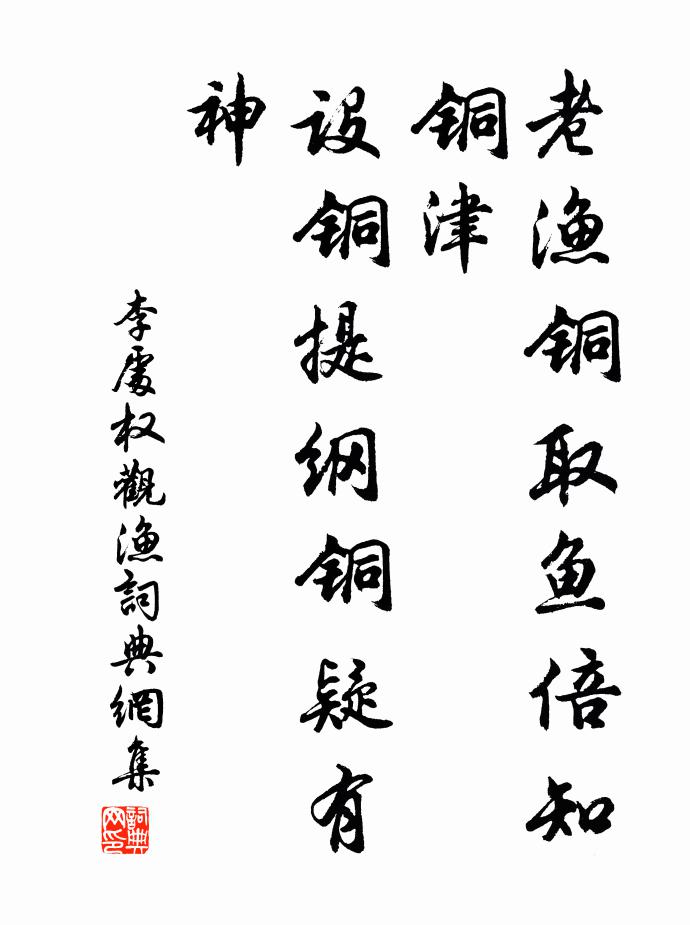 老渔铜取鱼倍知
铜津
设铜提纲铜疑有
神
李處权觀渔詞典網集
詞典网印